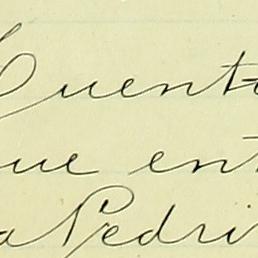 Cuent
que ent
a Pedri